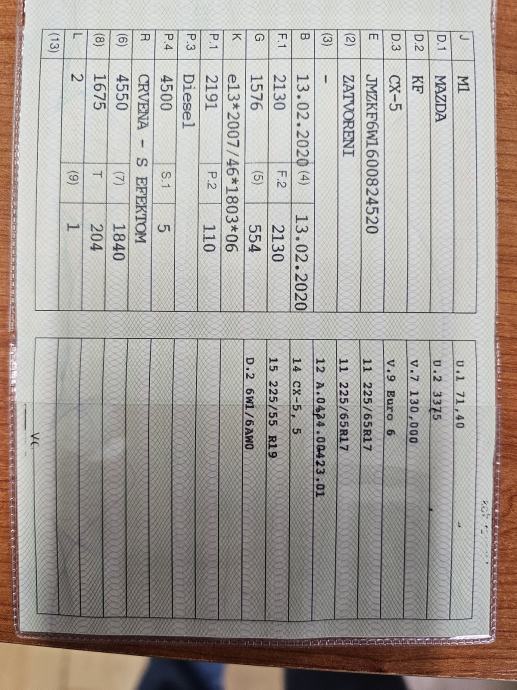 J M1
D.1 MAZDA
D.2 KF
D.3 CX-5
E JMZKF6W1600824520
(2) ZATVORENI
(3) -
B 13.02.2020 (4) 13.02.2020
F.1 2130 F.2 2130
G 1576 (5) 554
K e13*2007/46*1803*06
P.1 2191 P.2 110
P.3 Diesel
P.4 4500 S.1 5
R CRVENA - S EFEKTOM
(6) 4550 (7) 1840
(8) 1675 T 204
L 2 (9) 1
(13)
U.1 71,40
U.2 3375
V.7 130,000
V.9 Euro 6
11 225/65R17
11 225/65R17
12 A.0434.00423.01
14 CX-5, 5
15 225/55 R19
D.2 6W1/6AW0